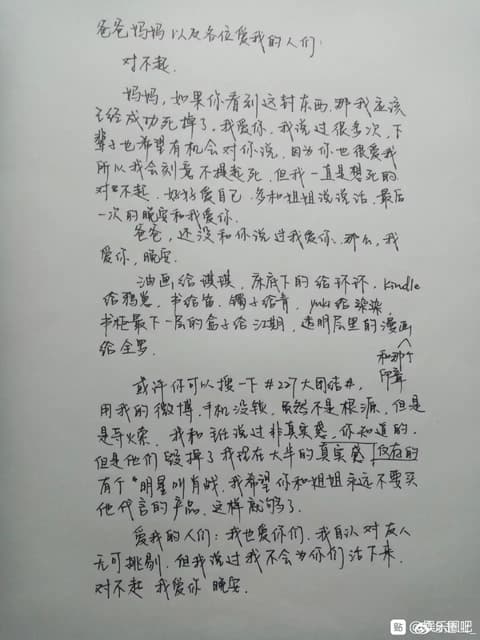 爸爸妈妈以及各位爱我的人们：
对不起.
妈妈，如果你看到这封东西.那我应该
已经成功死掉了.我爱你.我说过很多次，下
辈子也希望有机会对你说，因为你也很爱我
所以我会刻意不提起死.但我一直是想死的
对不起.好好爱自己.多和姐姐说说话.最后
一次的晚安和我爱你.
爸爸，还没和你说过我爱你.那么，我
爱你，晚安.
油画给琪琪，床底下的给环环.kindle
给鸦崽.书给笛.镯子给青.yuki给染染.
书柜最下一层的盒子给江期.透明层里的漫画
和那个印章
给全罗.
或许你可以搜一下#227大团结#.
用我的微博.手机没锁.虽然不是根源，但是
是导火索.我和主任说过非真实感.你知道的.
但是他们毁掉了我现在大半的真实感.仅存的
有个“明星叫肖战.我希望你和姐姐永远不要买
他代言的产品.这样就够了.
爱我的人们：我也爱你们.我自认对友人
无可挑剔.但我说过我不会为你们活下来.
对不起 我爱你 晚安.
贴 @娱乐圈吧